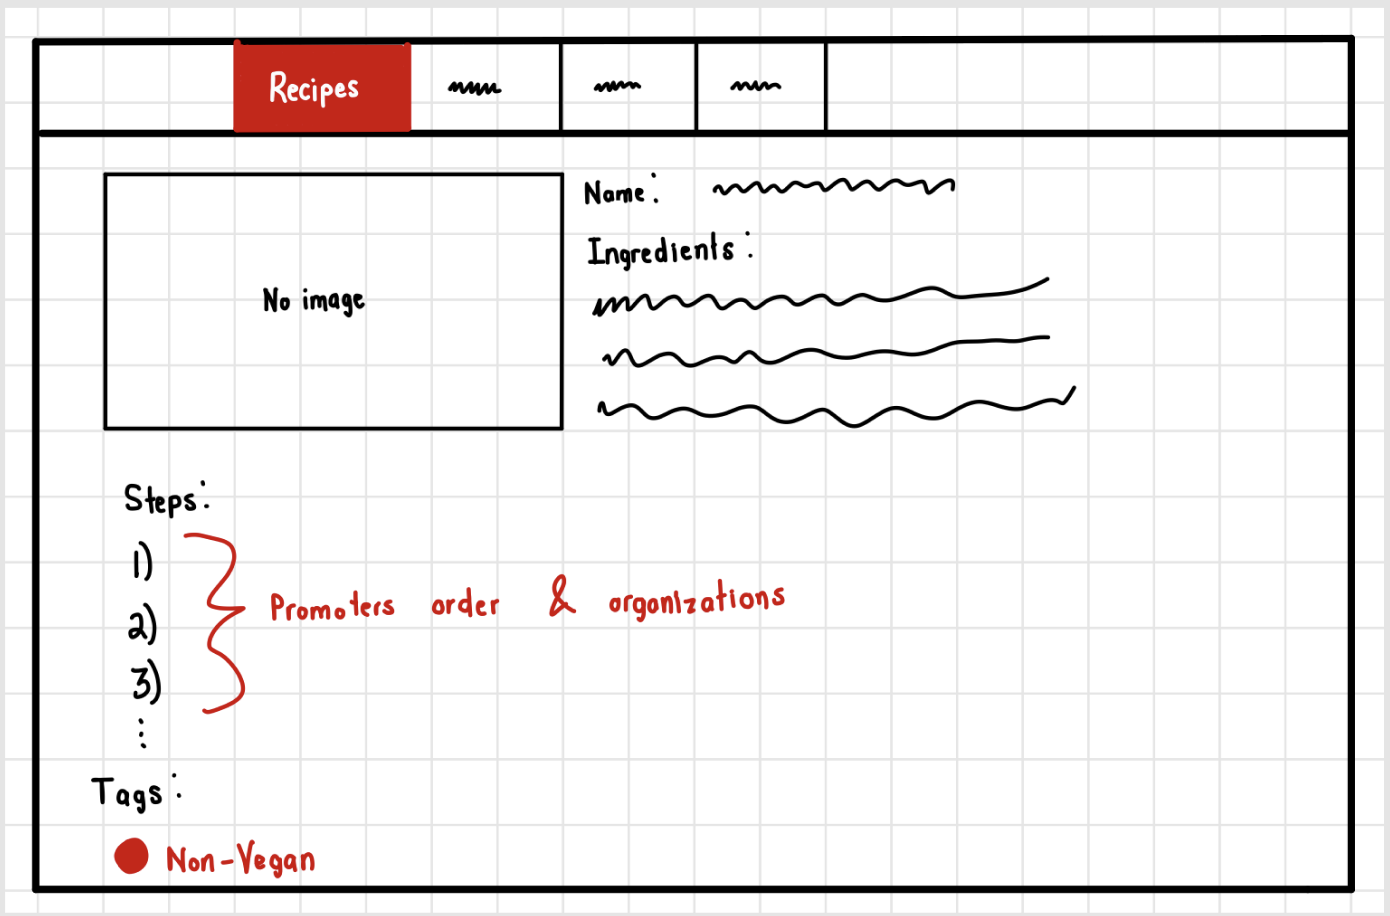 Recipes
No image
Name:
Ingredients:
Steps:
1)
2)
3)
Promoters order & organizations
Tags:
Non-Vegan